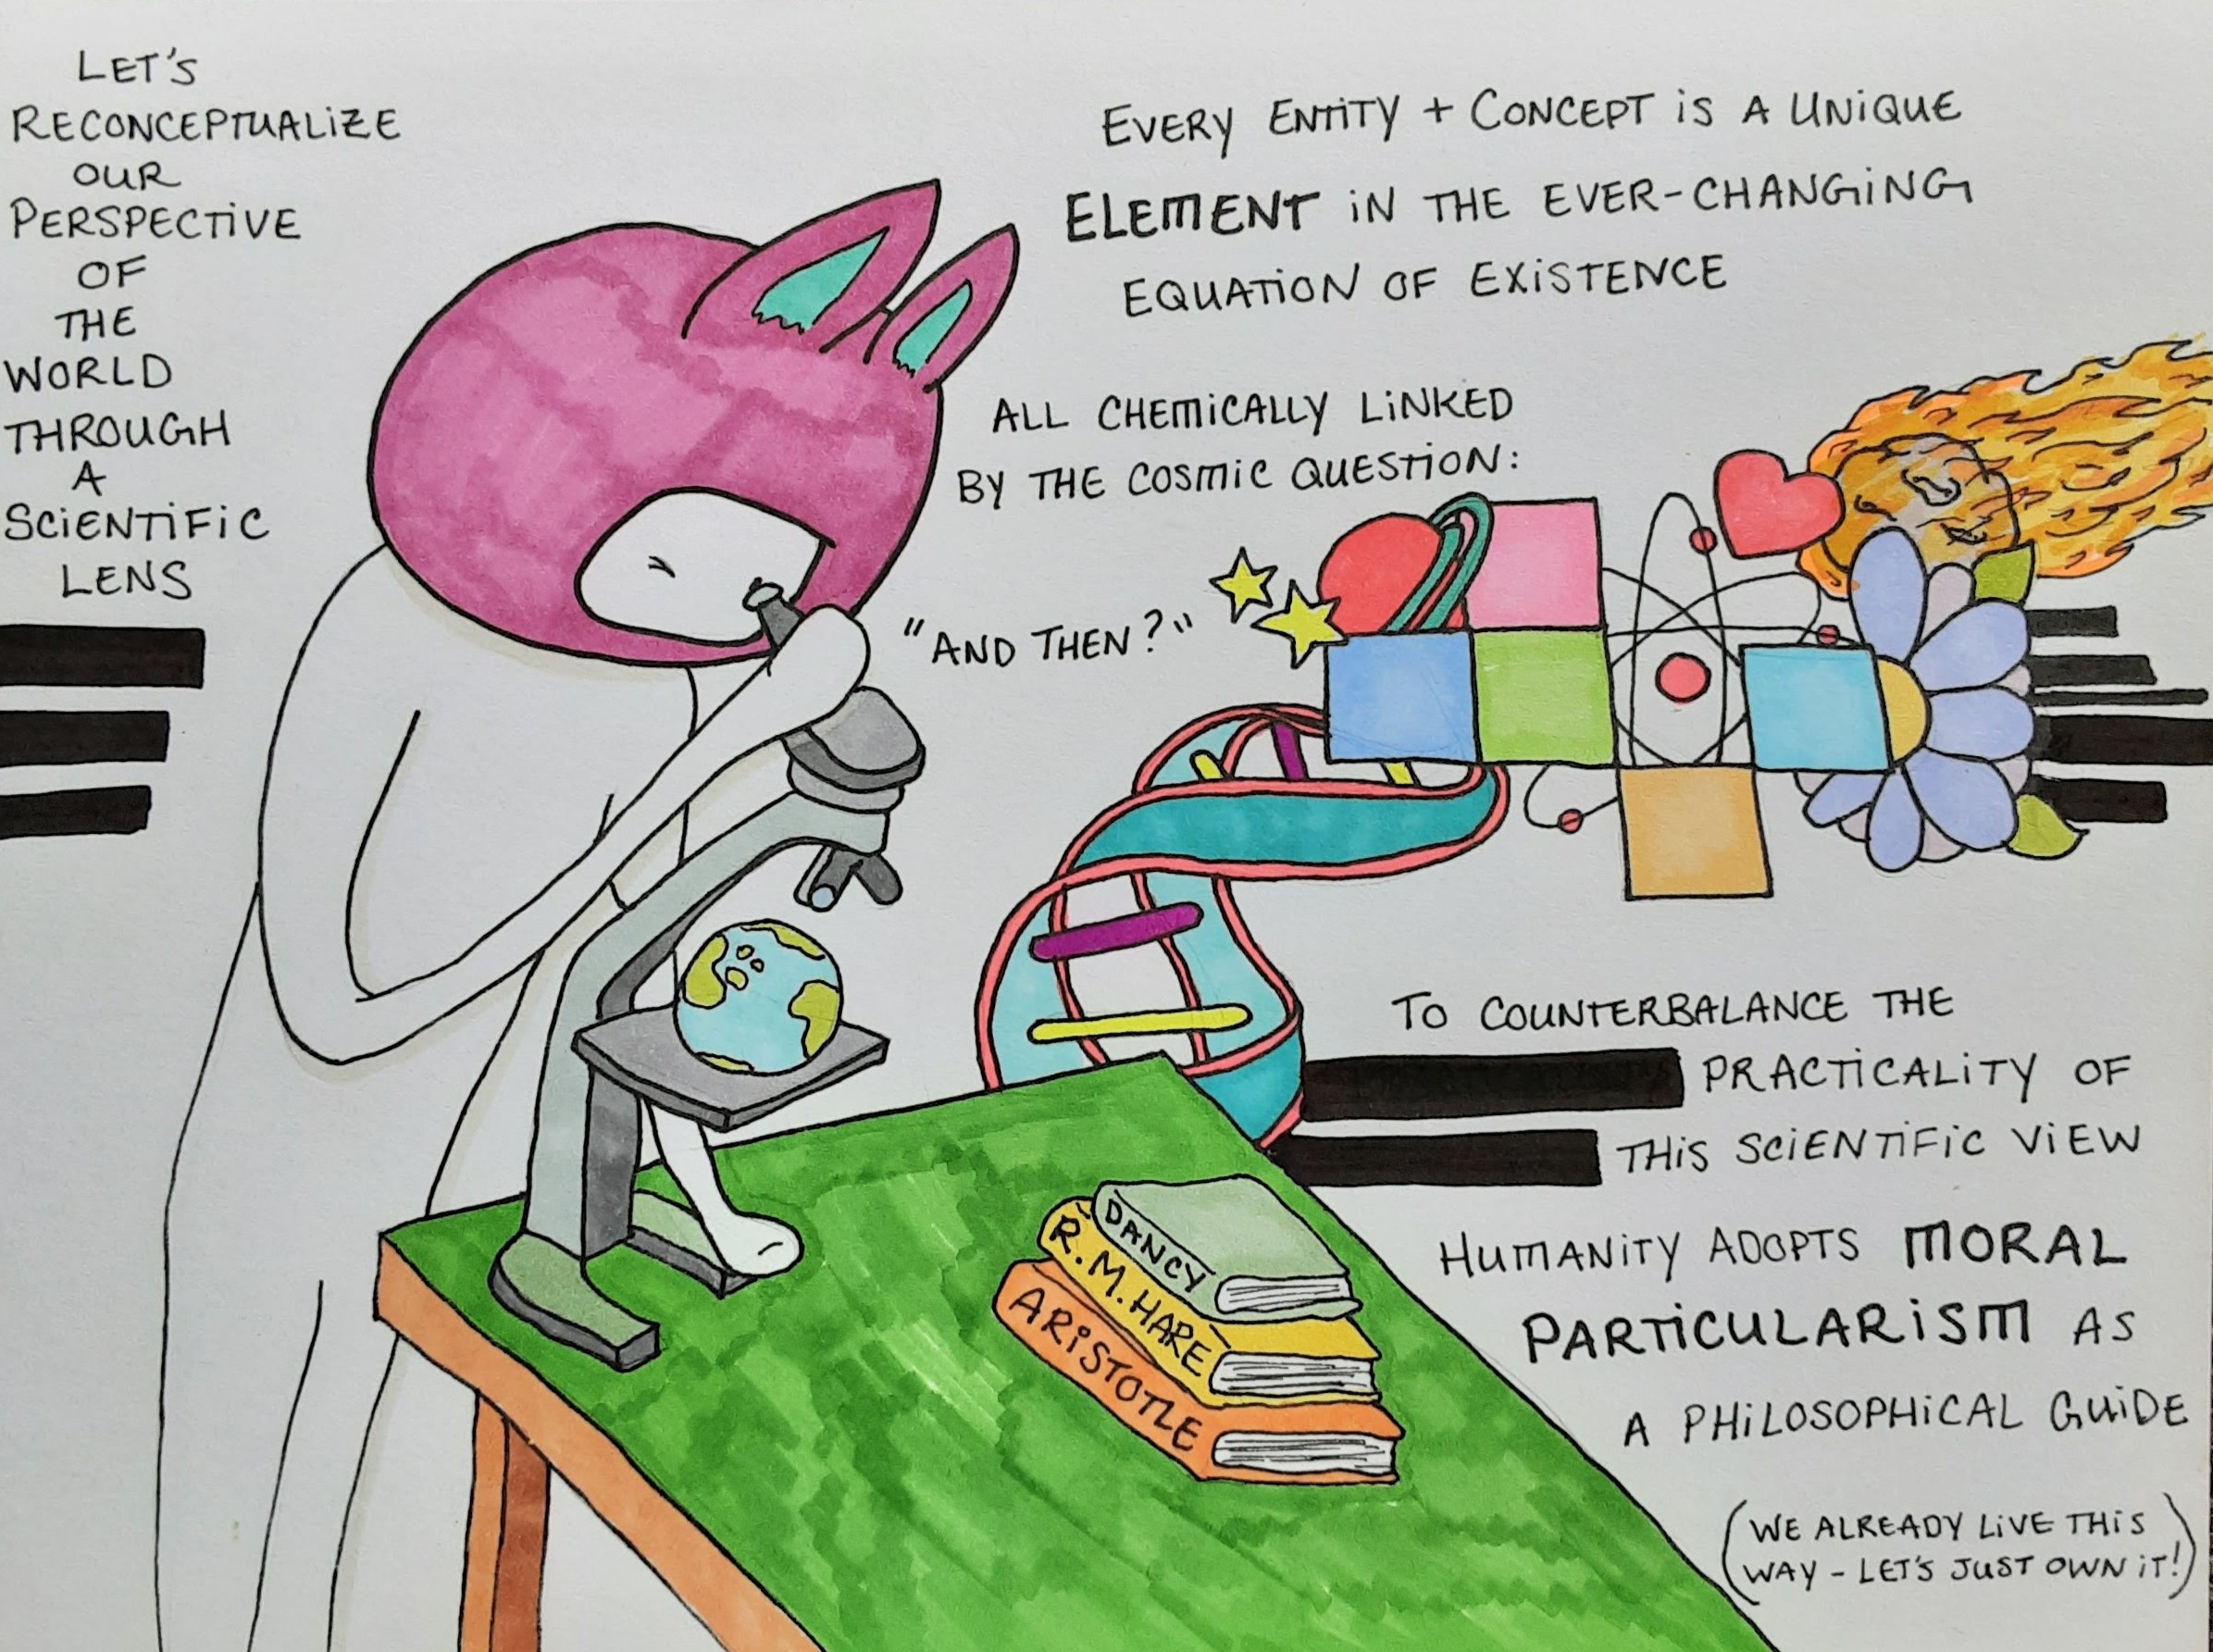 LET'S
RECONCEPTUALIZE
OUR
PERSPECTIVE
OF
THE
WORLD
THROUGH
A
SCIENTIFIC
LENS
EVERY ENTITY + CONCEPT IS A UNIQUE
ELEMENT IN THE EVER-CHANGING
EQUATION OF EXISTENCE
ALL CHEMICALLY LINKED
BY THE COSMIC QUESTION:
"AND THEN?"
TO COUNTERBALANCE THE
PRACTICALITY OF
THIS SCIENTIFIC VIEW
HUMANITY ADOPTS MORAL
PARTICULARISM AS
A PHILOSOPHICAL GUIDE
(WE ALREADY LIVE THIS
WAY - LET'S JUST OWN IT!)
DANCY
R.M. HARE
ARISTOTLE